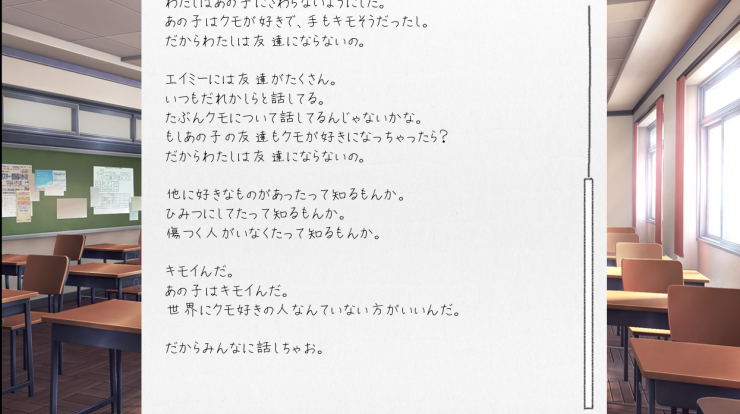 わたしはあの子にさわらないようにした。
あの子はクモが好きで、手もキモそうだったし。
だからわたしは友達にならないの。
エイミーには友達がたくさん。
いつもだれかしらと話してる。
たぶんクモについて話してるんじゃないかな。
もしあの子の友達もクモが好きになっちゃったら?
だからわたしは友達にならないの。
他に好きなものがあったって知るもんか。
ひみつにしてたって知るもんか。
傷つく人がいなくたって知るもんか。
キモイんだ。
あの子はキモイんだ。
世界にクモ好きの人なんていない方がいいんだ。
だからみんなに話しちゃお。